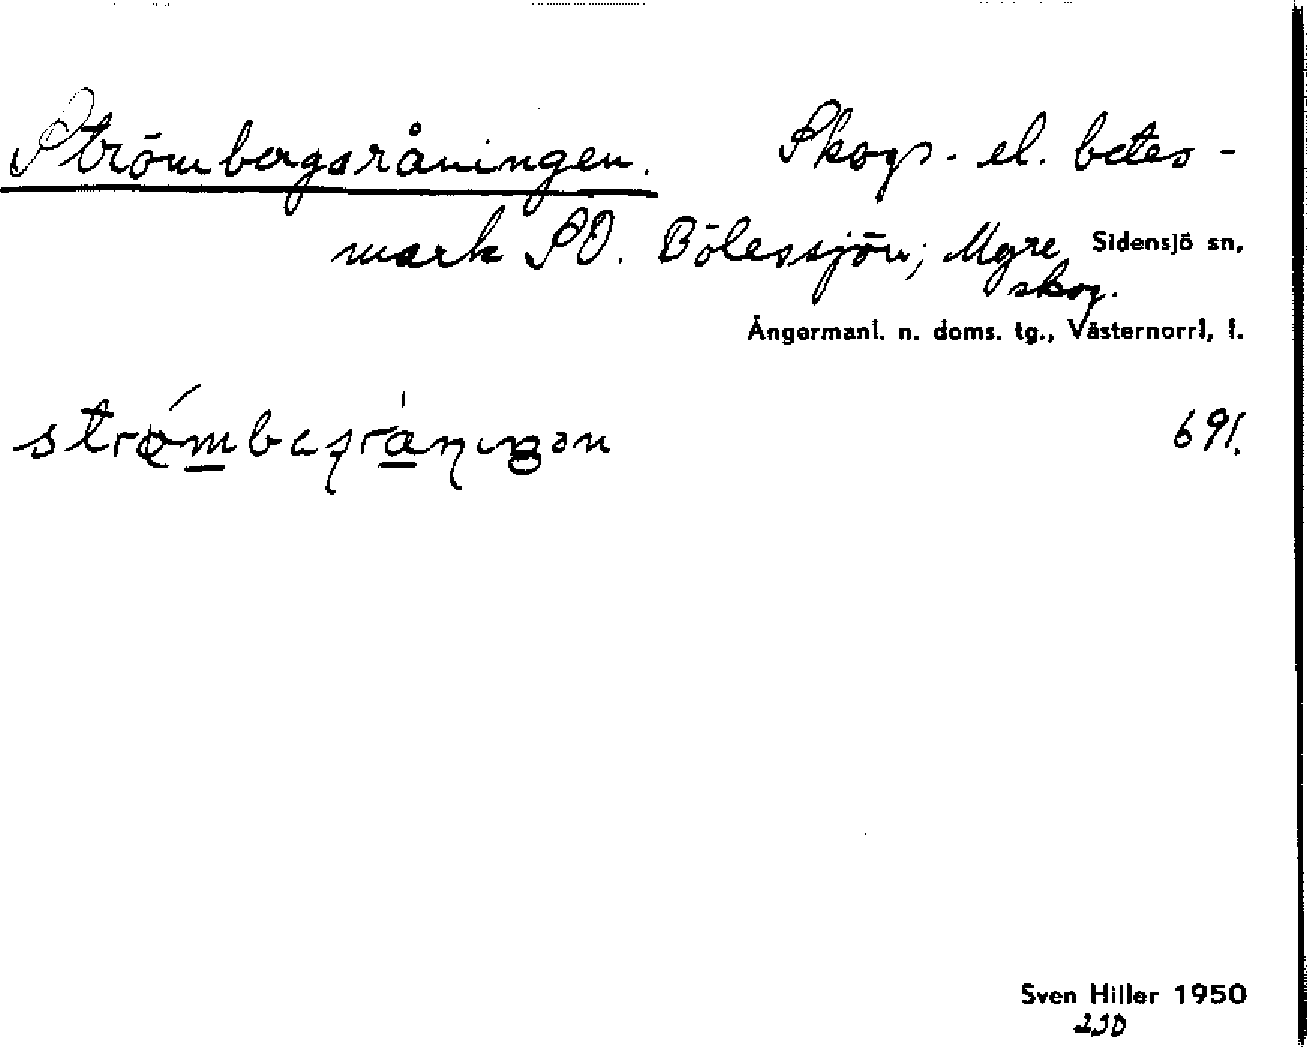 Strömbergsråningen. Skogs- el. betes-
mark SO. Bölessjön; Mgre Sidensjö sn,
skog.
Ångermanl. n. doms. tg., Västernorrl, l.
691.
Sven Hiller 1950